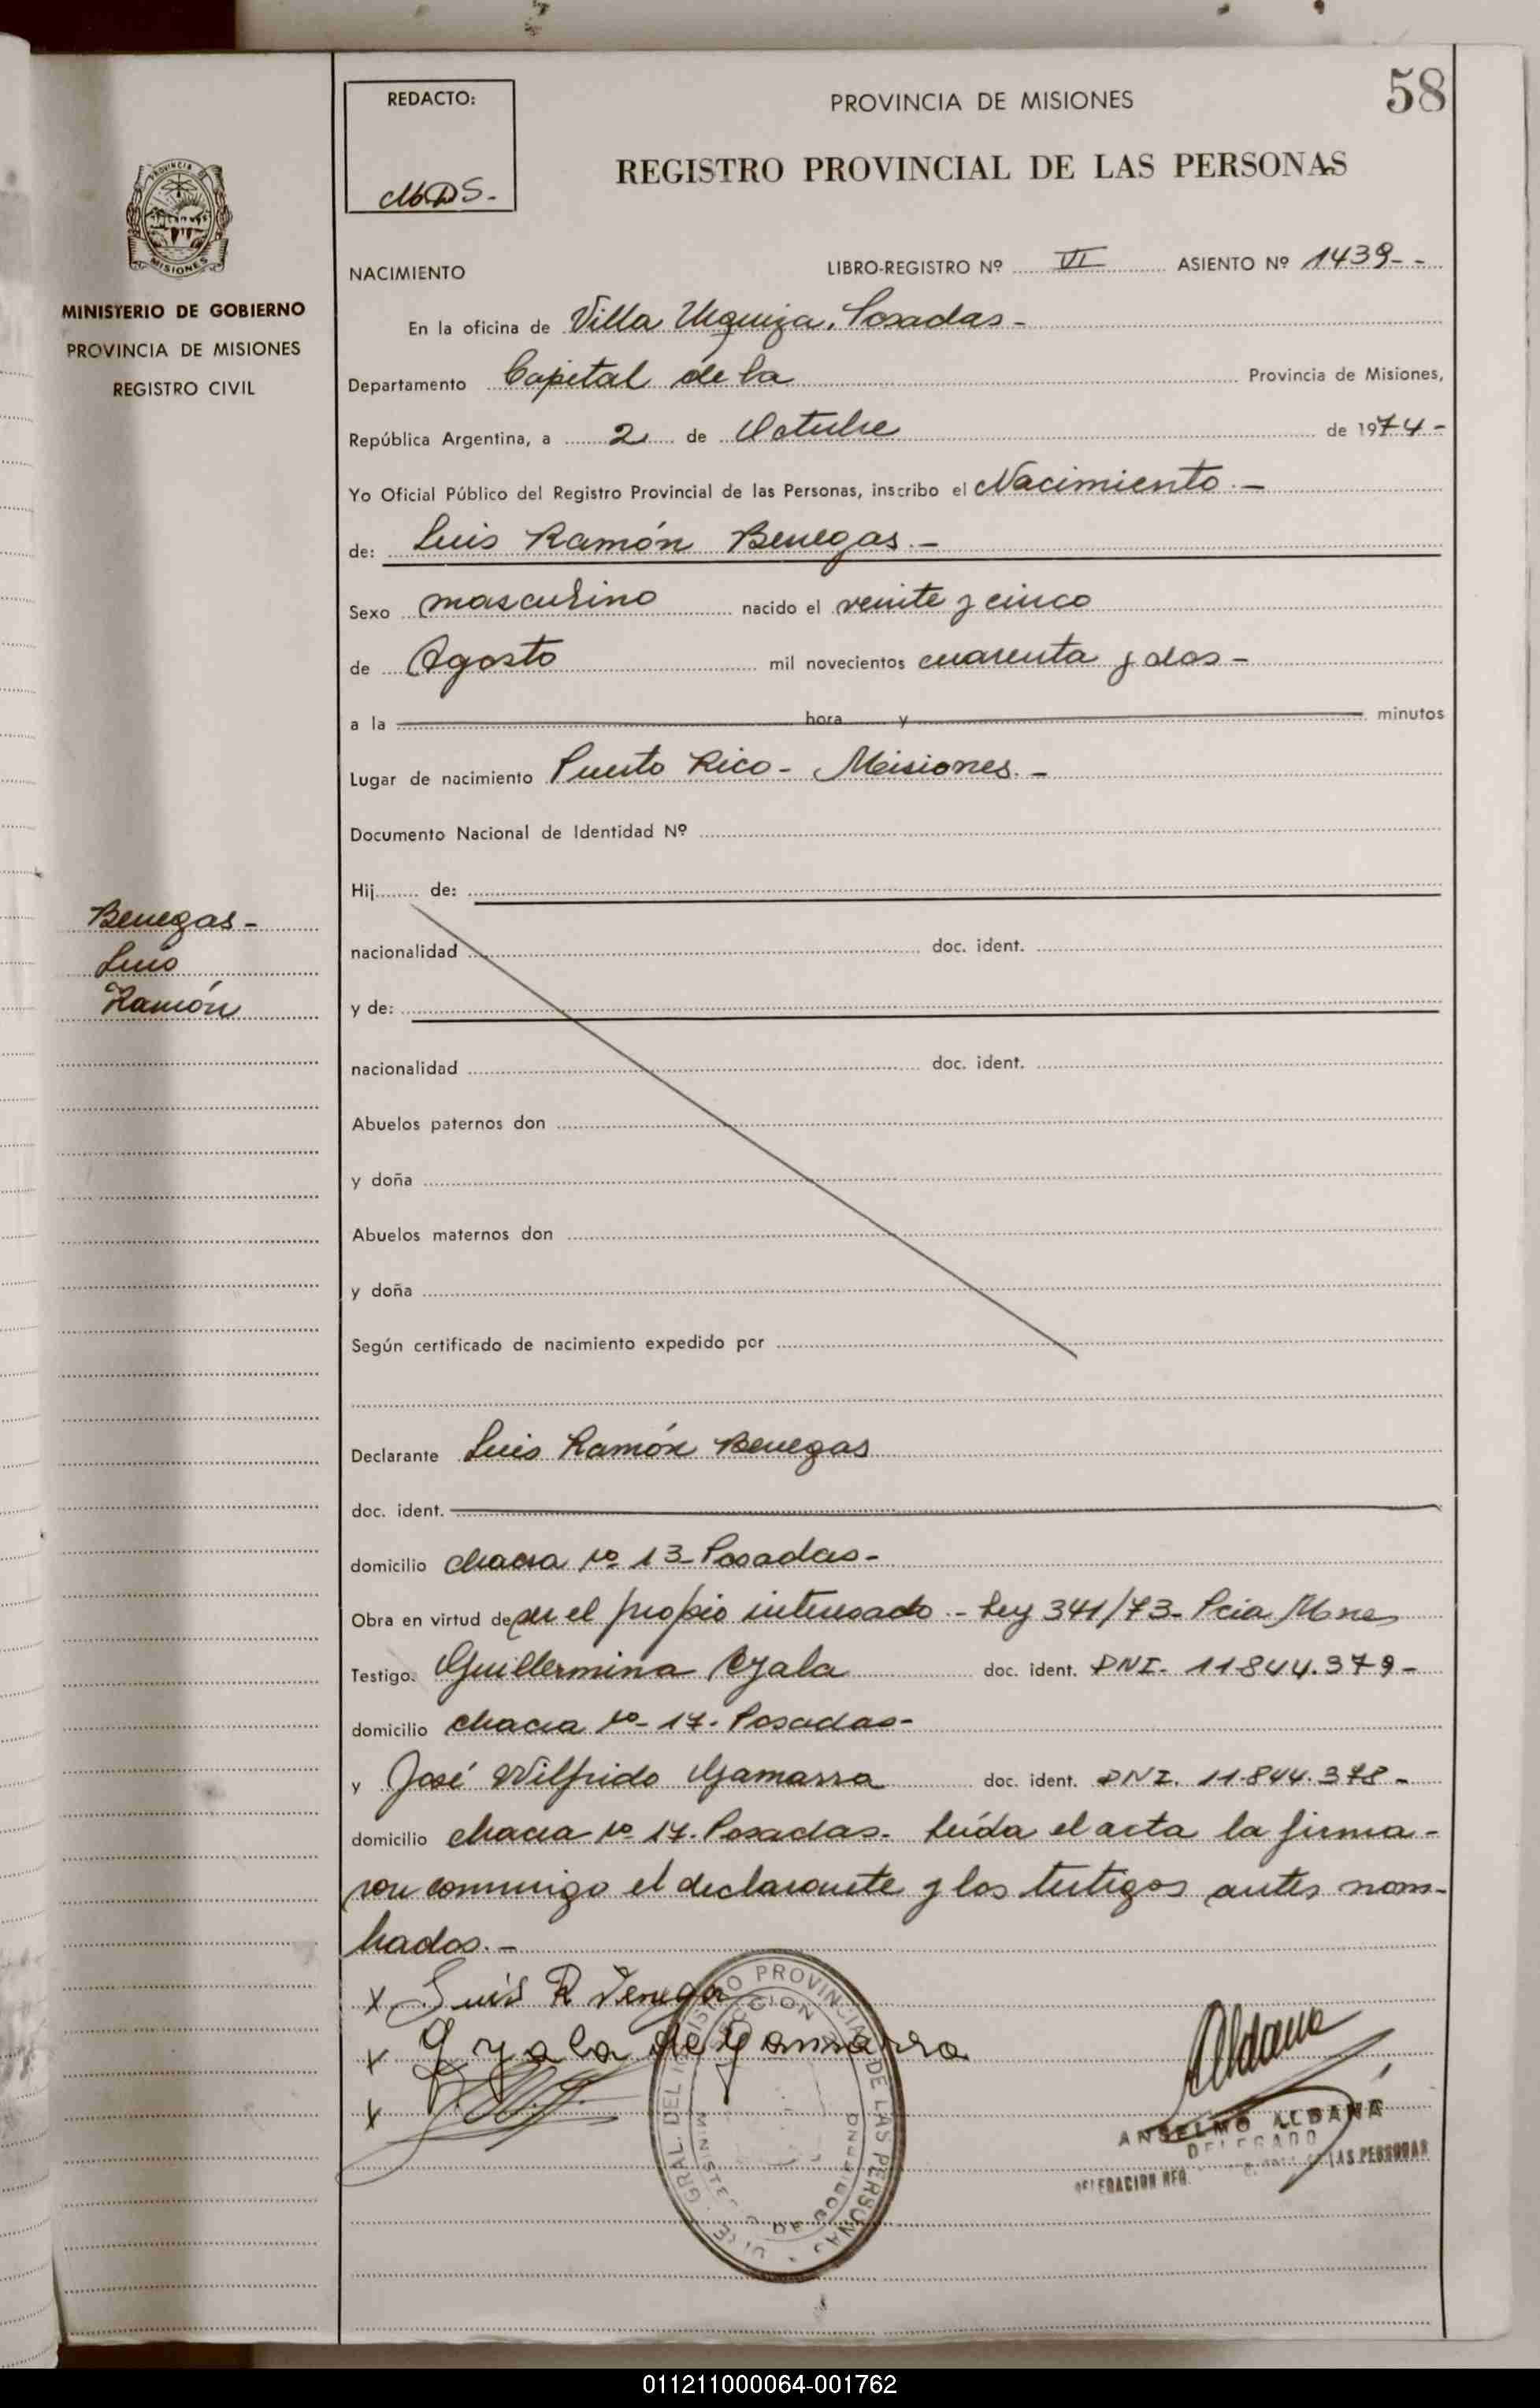 58
REDACTO:
MDS-
PROVINCIA DE MISIONES
REGISTRO PROVINCIAL DE LAS PERSONAS
PROVINCIA DE
MISIONES
MINISTERIO DE GOBIERNO
PROVINCIA DE MISIONES
REGISTRO CIVIL
NACIMIENTO LIBRO-REGISTRO Nº VI ASIENTO Nº 1439--
En la oficina de Villa Urquiza, Posadas-
Departamento Capital de la Provincia de Misiones,
República Argentina, a 2 de Octubre de 1974-
Yo Oficial Público del Registro Provincial de las Personas, inscribo el Nacimiento.-
de: Luis Ramón Benegas.-
Sexo masculino nacido el veinte y cinco
de Agosto mil novecientos cuarenta y dos-
a la hora y minutos
Lugar de nacimiento Puerto Rico- Misiones.-
Documento Nacional de Identidad Nº
Hij de:
Benegas-
Luis
Ramón
nacionalidad doc. ident.
y de:
nacionalidad doc. ident.
Abuelos paternos don
y doña
Abuelos maternos don
y doña
Según certificado de nacimiento expedido por
Declarante Luis Ramón Benegas
doc. ident.
domicilio chacra Nº 13-Posadas-
Obra en virtud de ser el propio interesado.- Ley 341/73- Pcia Mnes
Testigo. Guillermina Ayala doc. ident. DNI- 11844.379-
domicilio chacra Nº- 17- Posadas-
y José Wilfrido Gamarra doc. ident. DNI. 11-844.378-
domicilio chacra Nº 17. Posadas. Leída el acta la firma-
ron conmigo el declarante y los testigos antes nom-
brados.-
x Luis R Venega
x G yala de Gamarra
x
Aldana
ANSELMO ALDANA
DELEGADO
DELEGACION REG. LAS PERSONAS
GRAL. DEL REGISTRO PROVINCIAL DE LAS PERSONAS
011211000064-001762